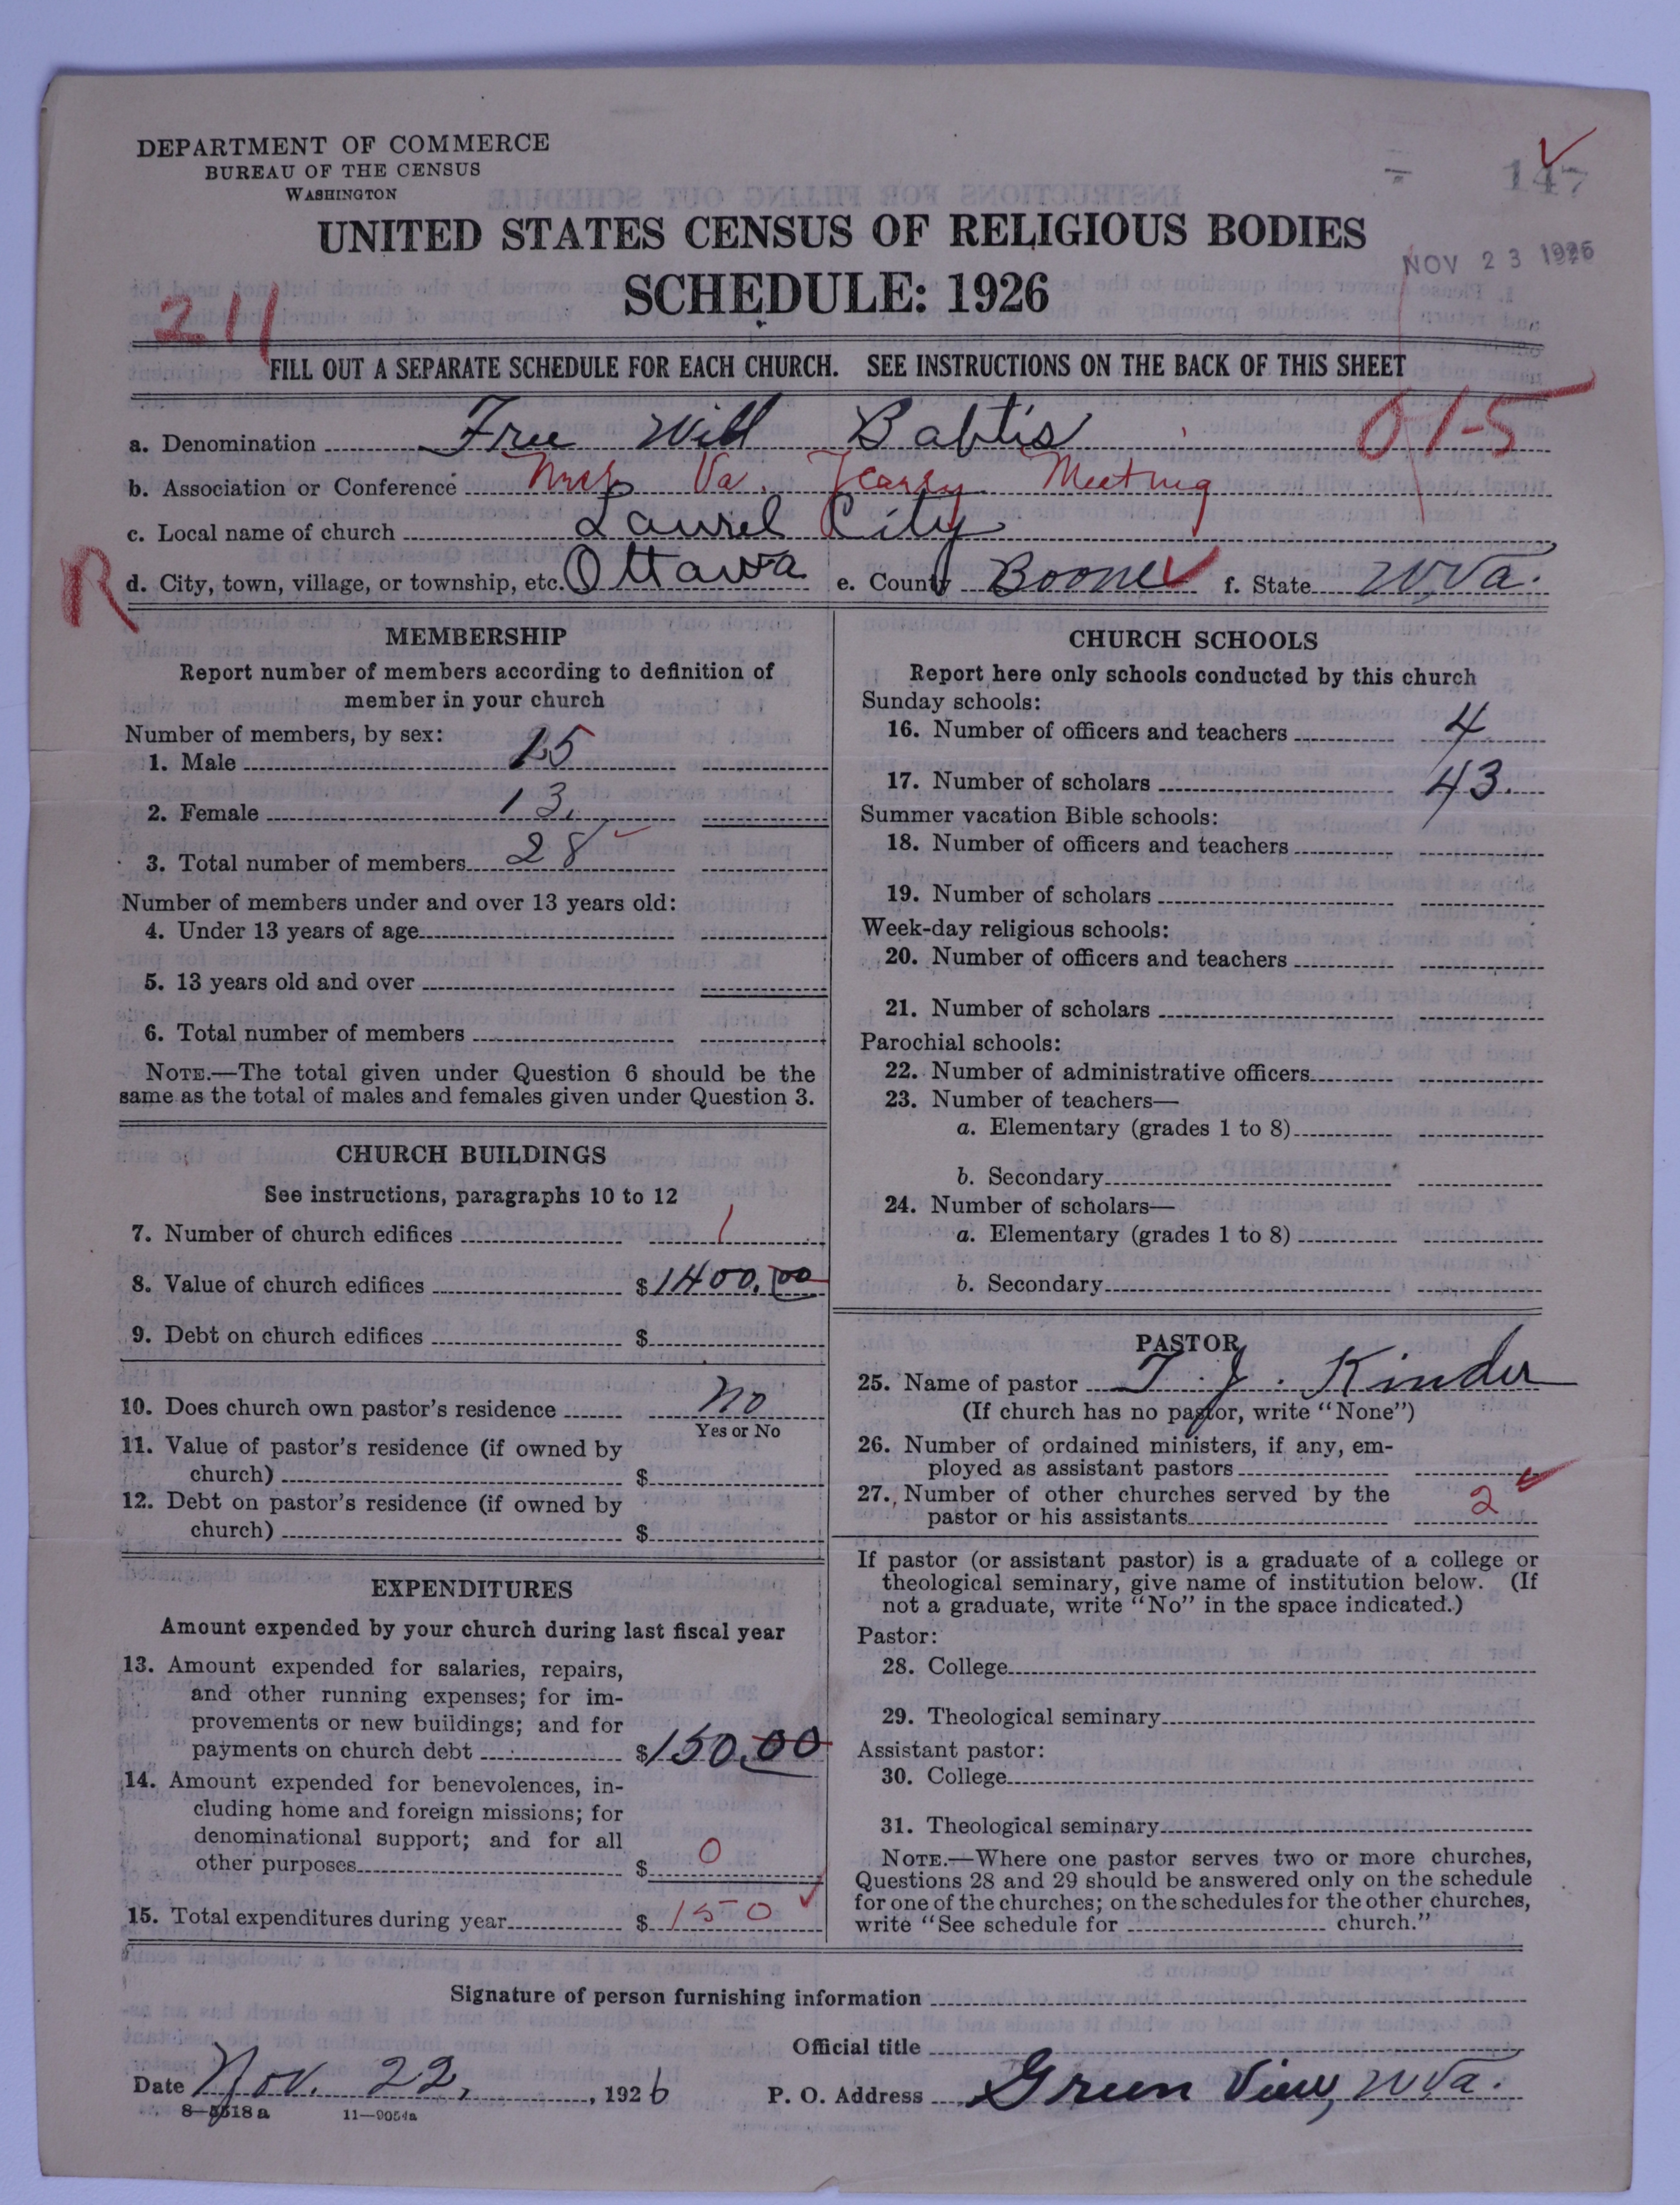 DEPARTMENT OF COMMERCE
BUREAU OF THE CENSUS
WASHINGTON
147
UNITED STATES CENSUS OF RELIGIOUS BODIES
SCHEDULE: 1926
NOV 23 1926
211
FILL OUT A SEPARATE SCHEDULE FOR EACH CHURCH. SEE INSTRUCTIONS ON THE BACK OF THIS SHEET
01-5
a. Denomination Free Will Babtis
b. Association or Conference Va. Yearly Meeting
c. Local name of church Laurel City
R
d. City, town, village, or township, etc. Ottawa e. County Boone f. State W,Va.
MEMBERSHIP
Report number of members according to definition of
member in your church
Number of members, by sex:
1. Male 15
2. Female 13.
3. Total number of members 28
Number of members under and over 13 years old:
4. Under 13 years of age
5. 13 years old and over
6. Total number of members
NOTE.—The total given under Question 6 should be the
same as the total of males and females given under Question 3.
CHURCH BUILDINGS
See instructions, paragraphs 10 to 12
7. Number of church edifices 1
8. Value of church edifices $1400.00
9. Debt on church edifices $
10. Does church own pastor's residence No
Yes or No
11. Value of pastor's residence (if owned by
church) $
12. Debt on pastor's residence (if owned by
church) $
EXPENDITURES
Amount expended by your church during last fiscal year
13. Amount expended for salaries, repairs,
and other running expenses; for im-
provements or new buildings; and for
payments on church debt $150.00
14. Amount expended for benevolences, in-
cluding home and foreign missions; for
denominational support; and for all
other purposes $ 0
15. Total expenditures during year $ 150
CHURCH SCHOOLS
Report here only schools conducted by this church
Sunday schools:
16. Number of officers and teachers 4
17. Number of scholars 43.
Summer vacation Bible schools:
18. Number of officers and teachers
19. Number of scholars
Week-day religious schools:
20. Number of officers and teachers
21. Number of scholars
Parochial schools:
22. Number of administrative officers
23. Number of teachers—
a. Elementary (grades 1 to 8)
b. Secondary
24. Number of scholars—
a. Elementary (grades 1 to 8)
b. Secondary
PASTOR
25. Name of pastor T. J. Kinder
(If church has no pastor, write "None")
26. Number of ordained ministers, if any, em-
ployed as assistant pastors
27. Number of other churches served by the
pastor or his assistants 2
If pastor (or assistant pastor) is a graduate of a college or
theological seminary, give name of institution below. (If
not a graduate, write "No" in the space indicated.)
Pastor:
28. College
29. Theological seminary
Assistant pastor:
30. College
31. Theological seminary
NOTE.—Where one pastor serves two or more churches,
Questions 28 and 29 should be answered only on the schedule
for one of the churches; on the schedules for the other churches,
write "See schedule for church."
Signature of person furnishing information
Official title
Date Nov. 22, , 1926 P. O. Address Green View, W Va.
8—5518a 11—9051a